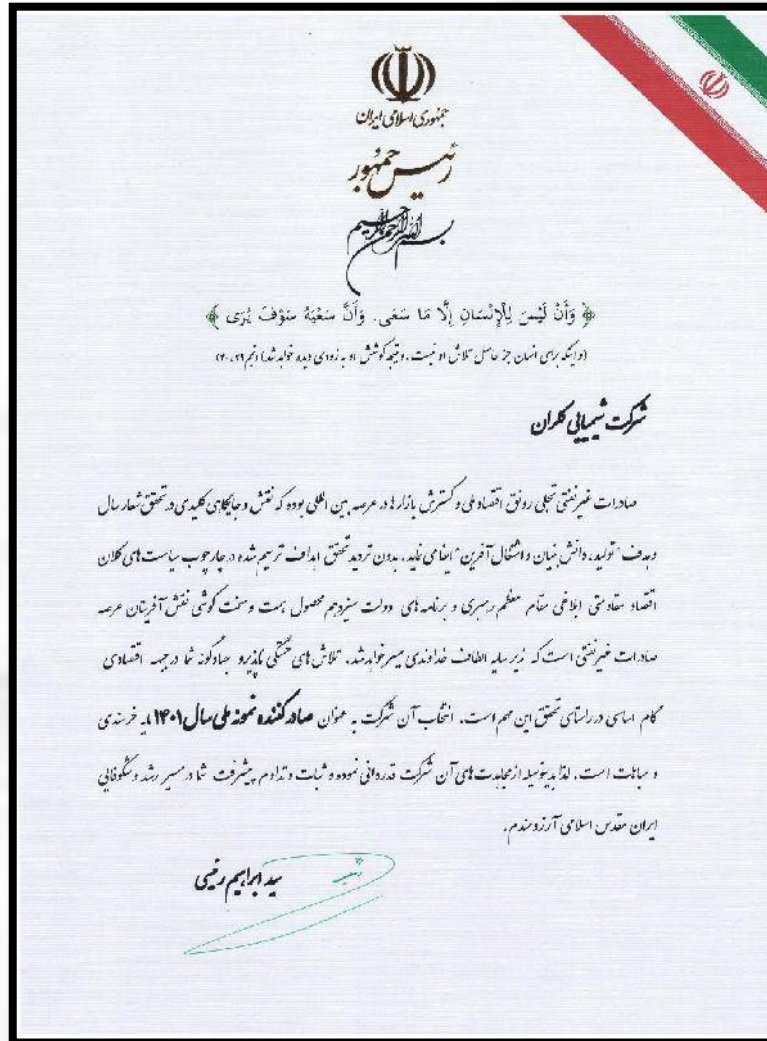 جمهوری اسلامی ایران
رئیس جمهور
بسم الله الرحمن الرحیم
﴿ وَأَنْ لَيْسَ لِلْإِنْسَانِ إِلَّا مَا سَعَى. وَأَنَّ سَعْيَهُ سَوْفَ يُرَى ﴾
(و اینکه برای انسان جز حاصل تلاش او نیست، و نتیجه کوشش او به زودی دیده خواهد شد) (نجم ۳۹، ۴۰)
شرکت شیمیایی کلران
صادرات غیرنفتی تجلی رونق اقتصاد ملی و گسترش بازارها در عرصه بین المللی بوده که نقش و جایگاهی کلیدی در تحقق شعار سال
و هدف "تولید، دانش بنیان و اشتغال آفرین" ایفا می نماید. بدون تردید تحقق اهداف ترسیم شده در چارچوب سیاست های کلان
اقتصاد مقاومتی ابلاغی مقام معظم رهبری و برنامه های دولت سیزدهم محصول همت و سخت کوشی نقش آفرینان عرصه
صادرات غیرنفتی است که زیر سایه الطاف خداوندی میسر خواهد شد. تلاش های خستگی ناپذیر و جهادگونه شما در جبهه اقتصادی
گام اساسی در راستای تحقق این مهم است. انتخاب آن شرکت به عنوان صادرکننده نمونه ملی سال ۱۴۰۱ مایه خرسندی
و مباهات است. لذا بدینوسیله از مجاهدت های آن شرکت قدردانی نموده و ثبات و تداوم پیشرفت شما در مسیر رشد و شکوفایی
ایران مقدس اسلامی آرزومندم.
سید ابراهیم رئیسی